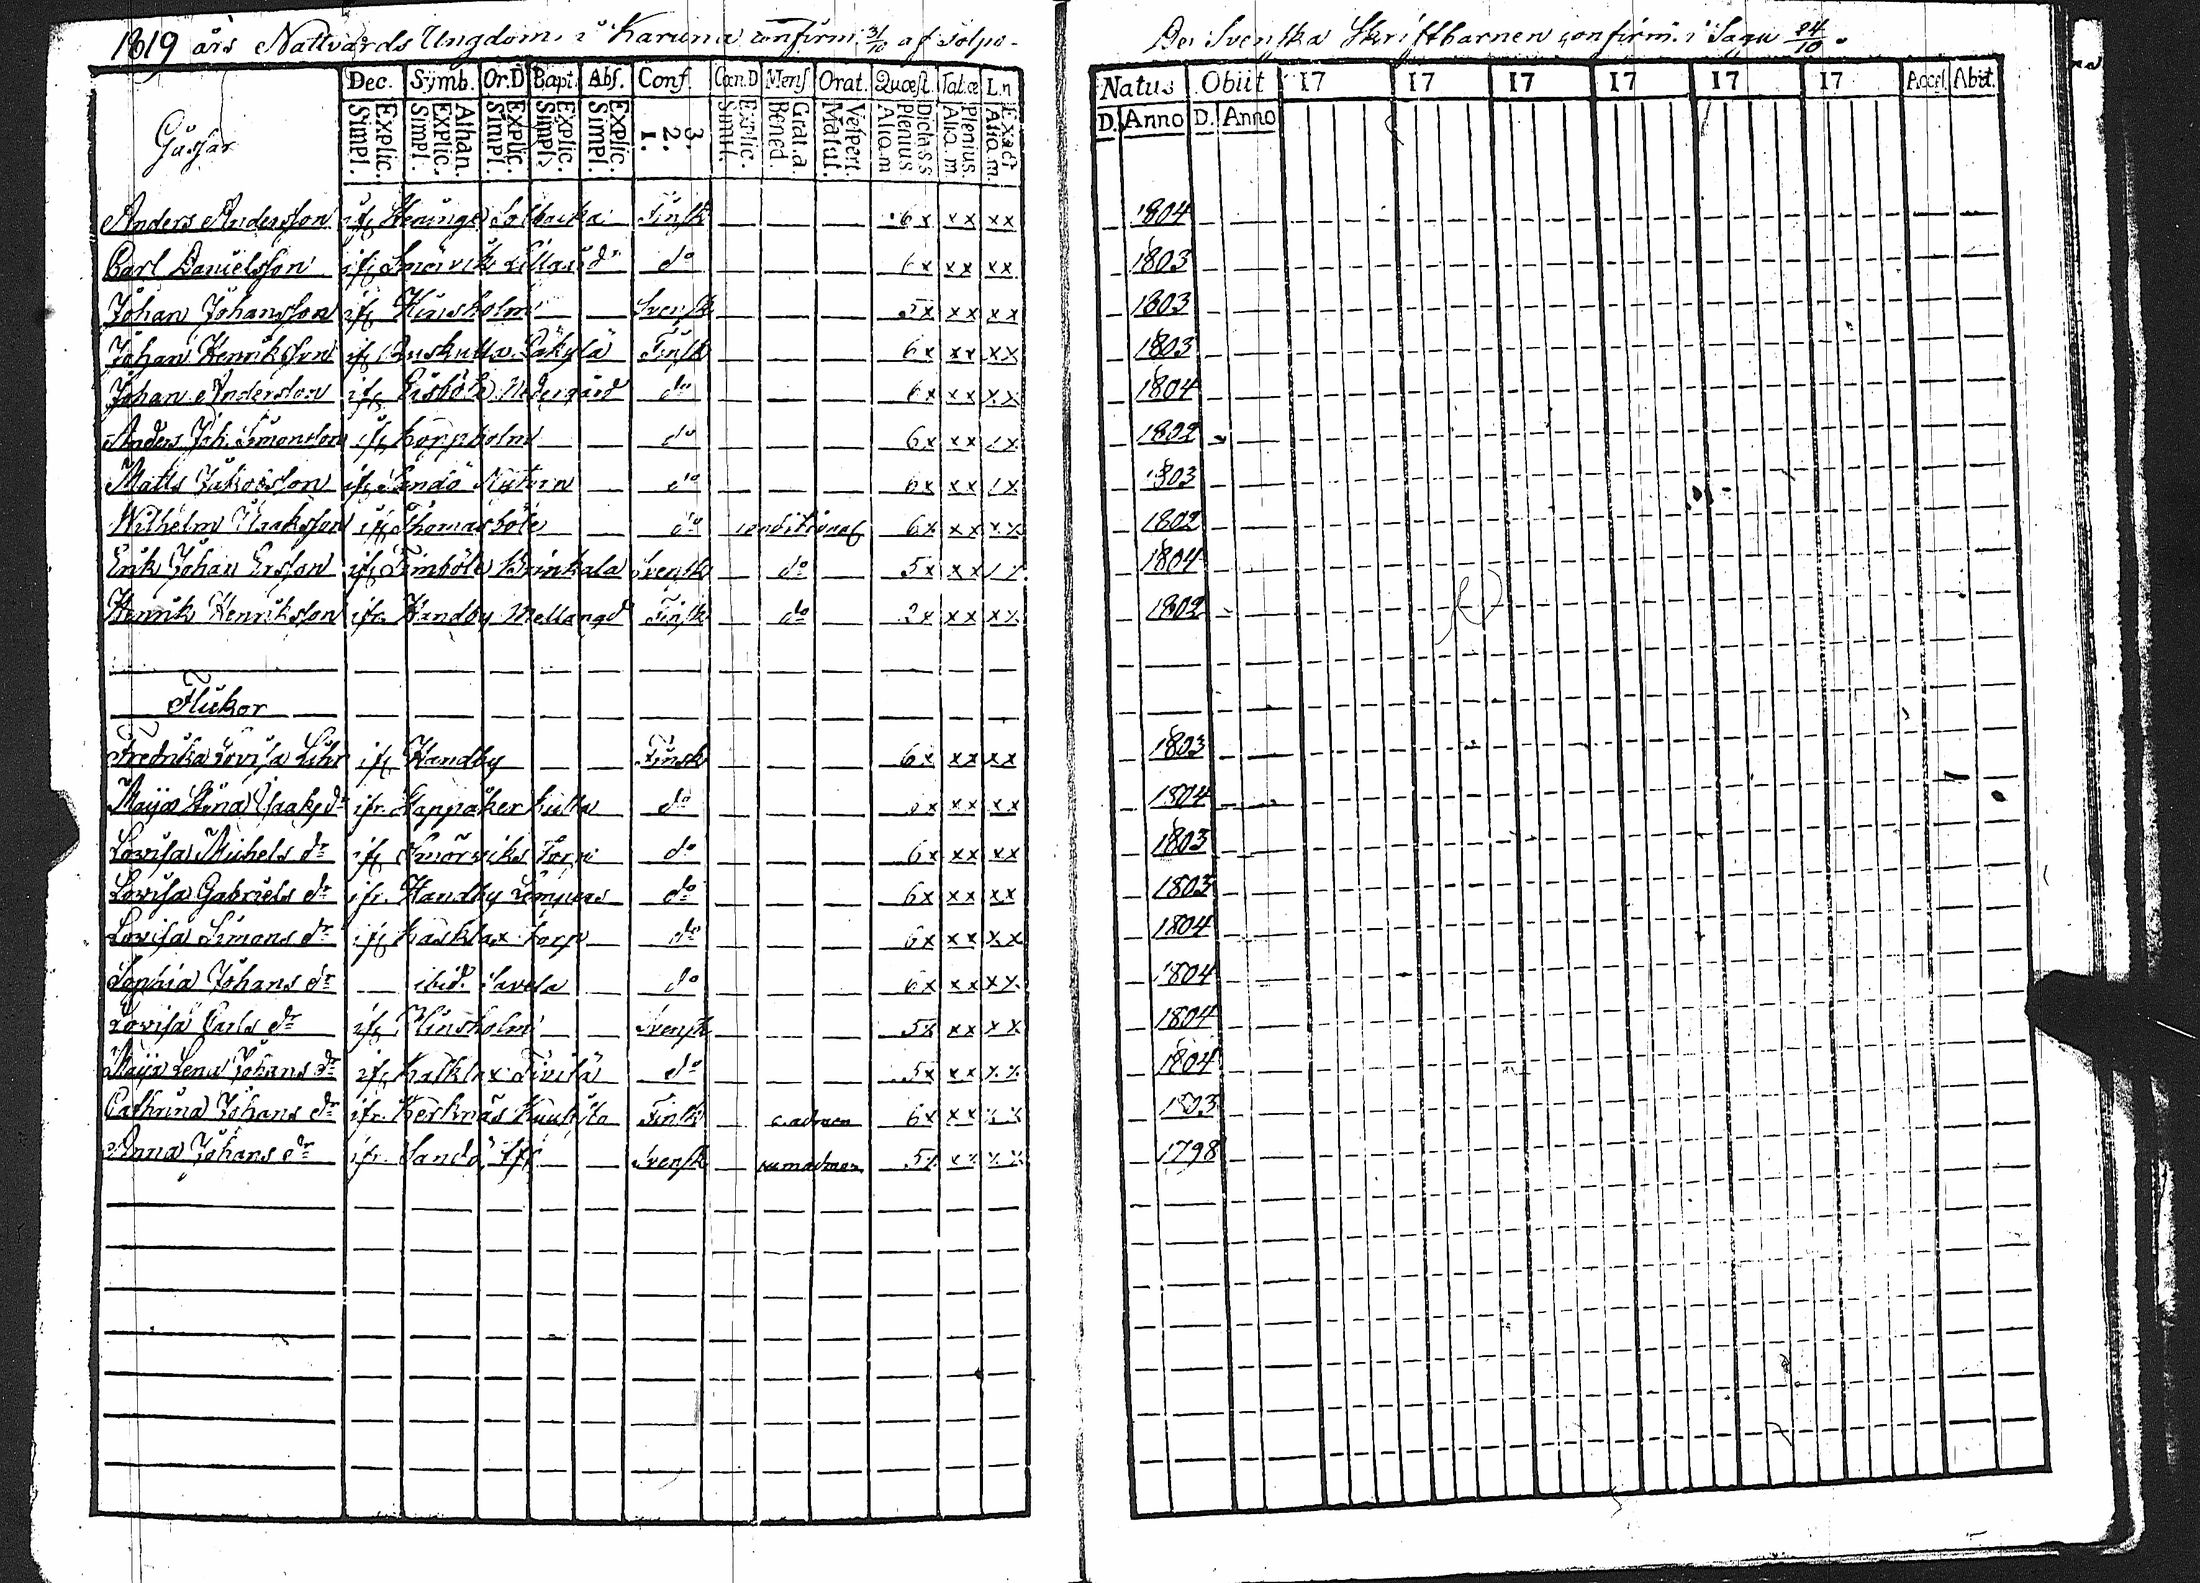 1819 års Nattvards Ungdom i Karuna confirm. 31/10 af
De Svenska Skriftbarnen confirm. i Sagu 24/10.
Dec. Symb. Or.D Bapt. Abs. Conf. Cœn.D Mens Orat. Quæst. Tab.œ L.n
Explic. Simpl. Athan. Explic. Simpl. Explic. Simpl. Explic. Simpl. Explic. Simpl. 3. 2. 1. Explic. Simpl. Grat.a Bened. Vespert. Matut. Dict.a S.S Plenius Aliq.m Plenius. Aliq.m Exact Aliq.m.
Natus Obiit 17 17 17 17 17 17 Accel. Abiit.
D. Anno D. Anno
Gåssar
Anders Andersson ifr Solbacka Finsk 6x xx xx 1804
Carl Danielsson ifr Smörvik Lillgård do 6x xx xx 1803
Johan Johansson ifr Svensk 5x xx xx 1803
Johan Henriksson ifr Finsk 6x xx xx 1803
Johan Andersson ifr Nedergård do 6x xx xx 1804
Anders Joh. Simonsson ifr Koppholm do 6x xx xx 1802
Matts Jakobsson ifr Sandö do 6x xx xx 1803
Wilhelm Isaaksson ifr Thomasböle do conditional 6x xx xx 1802
Erik Johan Ersson ifr Timböle Brinkala Svensk do 5x xx xx 1804
Henrik Henriksson ifr. Handby Mellangd Finsk do 2x xx xx 1802
Flickor
Fredrika Lovisa ifr Handby Finsk 6x xx xx 1803
Maija Stina Isaaks dr ifr. do xx xx 1804
Lovisa Michels dr ifr Smörviks Torp do 6x xx xx 1803
Lovisa Gabriels dr ifr. Handby do 6x xx xx 1803
Lovisa Simons dr ifr Kasklax Torp do 6x xx xx 1804
Sophia Johans dr ibid. Savela do 6x xx xx 1804
Lovisa Carls dr ifr Svensk 5x xx xx 1804
Maija Lena Johans dr ifr Kasklax do 5x xx xx 1804
Cathrina Johans dr ifr. Finsk 6x xx xx 1803
Anna Johans dr ifr. Sandö Svensk 5x xx xx 1798